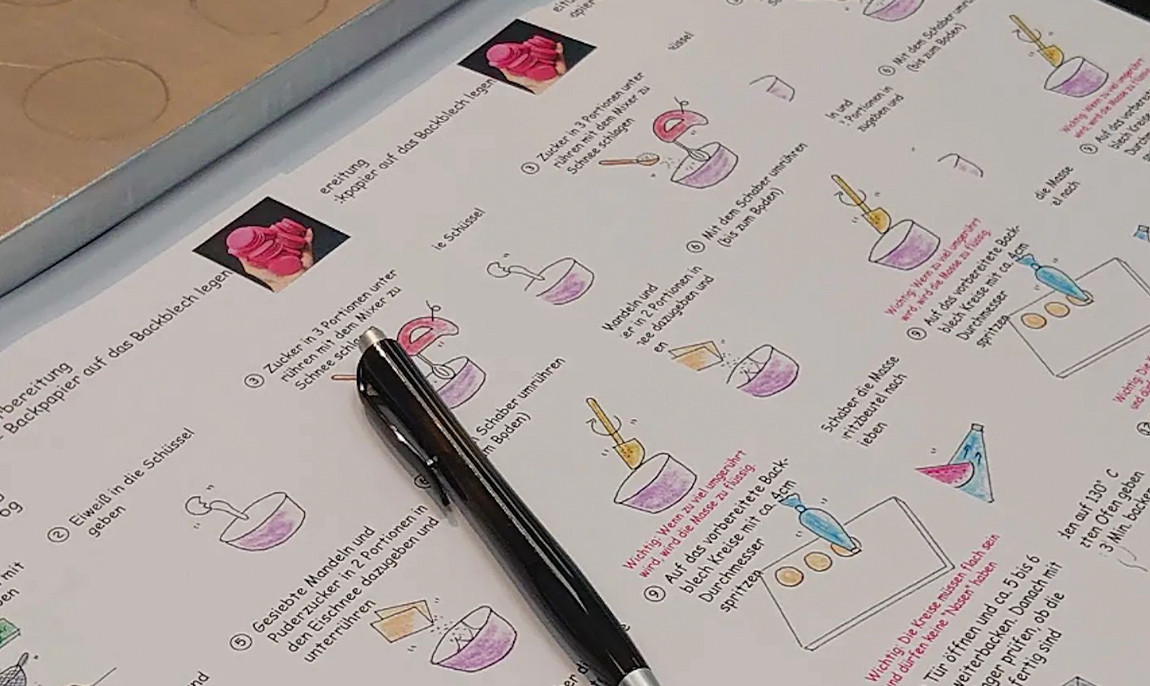 rbereitung
Backpapier auf das Backblech legen
② Eiweiß in die Schüssel
geben
③ Zucker in 3 Portionen unter
rühren mit dem Mixer zu
Schnee
⑤ Gesiebte Mandeln und
Puderzucker in 2 Portionen in
den Eischnee dazugeben und
unterrühren
Schaber umrühren
m Boden)
Wichtig: Wenn zu viel umgerührt
wird, wird die Masse zu flüssig.
⑨ Auf das vorbereitete Back-
blech Kreise mit ca. 4cm
Durchmesser
spritzen
Wichtig: Die Kreise müssen flach sein
und dürfen keine "Nasen" haben
Tür öffnen und ca. 5 bis 6
weiterbacken. Danach mit
ger prüfen, ob die
fertig sind
ereitung
kpapier auf das Backblech legen
ie Schüssel
③ Zucker in 3 Portionen unter
rühren mit dem Mixer zu
Schnee schlagen
Mandeln und
er in 2 Portionen in
ee dazugeben und
en
⑥ Mit dem Schaber umrühren
(bis zum Boden)
Wichtig: Wenn zu viel umgerührt
wird, wird die Masse zu flüssig.
⑨ Auf das vorbereitete Back-
blech Kreise mit ca. 4cm
Durchmesser
spritzen
Schaber die Masse
ritzbeutel nach
ieben
den auf 130° C
zten Ofen geben
3 Min. backen
üssel
ln und
Portionen in
zugeben und
⑥ Mit dem Schaber umrühren
(bis zum Boden)
die Masse
el nach
Wichtig: Wenn zu viel umgerührt
wird, wird die Masse zu flüssig
⑨ Auf das vorbereit
blech Kreise
Durchm